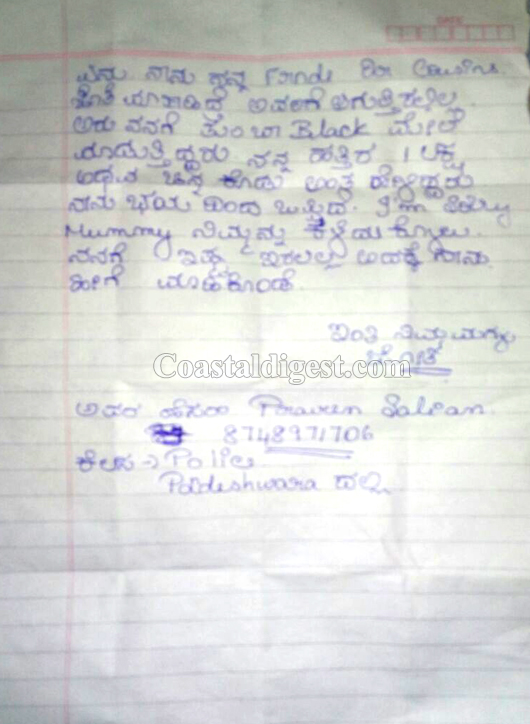 ನಾನು ನನ್ನ Frnds Or Cousins
ಜೊತೆ ಮಾತಾಡಿದ್ರೆ ಅವರಿಗೆ ಆಗುತ್ತಿರಲಿಲ್ಲ
ಅರು ನನಗೆ ತುಂಬಾ Black ಮೇಲೆ
ಮಾಡುತ್ತಿದ್ದರು ನನ್ನ ಹತ್ತಿರ 1 ಲಕ್ಷ
ಅಥವ ಚಿನ್ನ ಕೊಡು ಅಂತ ಹೇಳಿದ್ದರು
ನಾನು ಭಯ ದಿಂದ ಒಪ್ಪಿದೆ. I'm
Mummy ನಿಮ್ಮನ್ನು
ನನಗೆ ಇಷ್ಟ ಇರಲಿಲ್ಲ ಅದಕ್ಕೆ ನಾನು
ಹೀಗೆ ಮಾಡಿಕೊಂಡೆ.
ಇಂತಿ ನಿಮ್ಮ ಮಗಳು
Coastaldigest.com
ಅವರ ಹೆಸರು Praveen Salian
8748971706
ಕೆಲಸ → Police
Pandeshwara ದಲ್ಲಿ